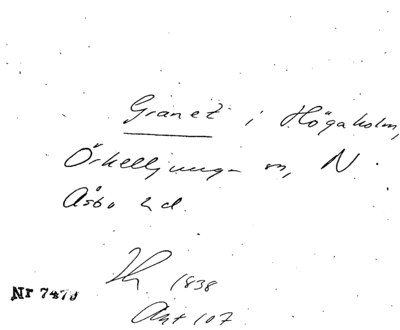 Granet i Högaholm,
Örkelljunga sn, N.
Åsbo hd.
1838
Akt 107
Nr 7470